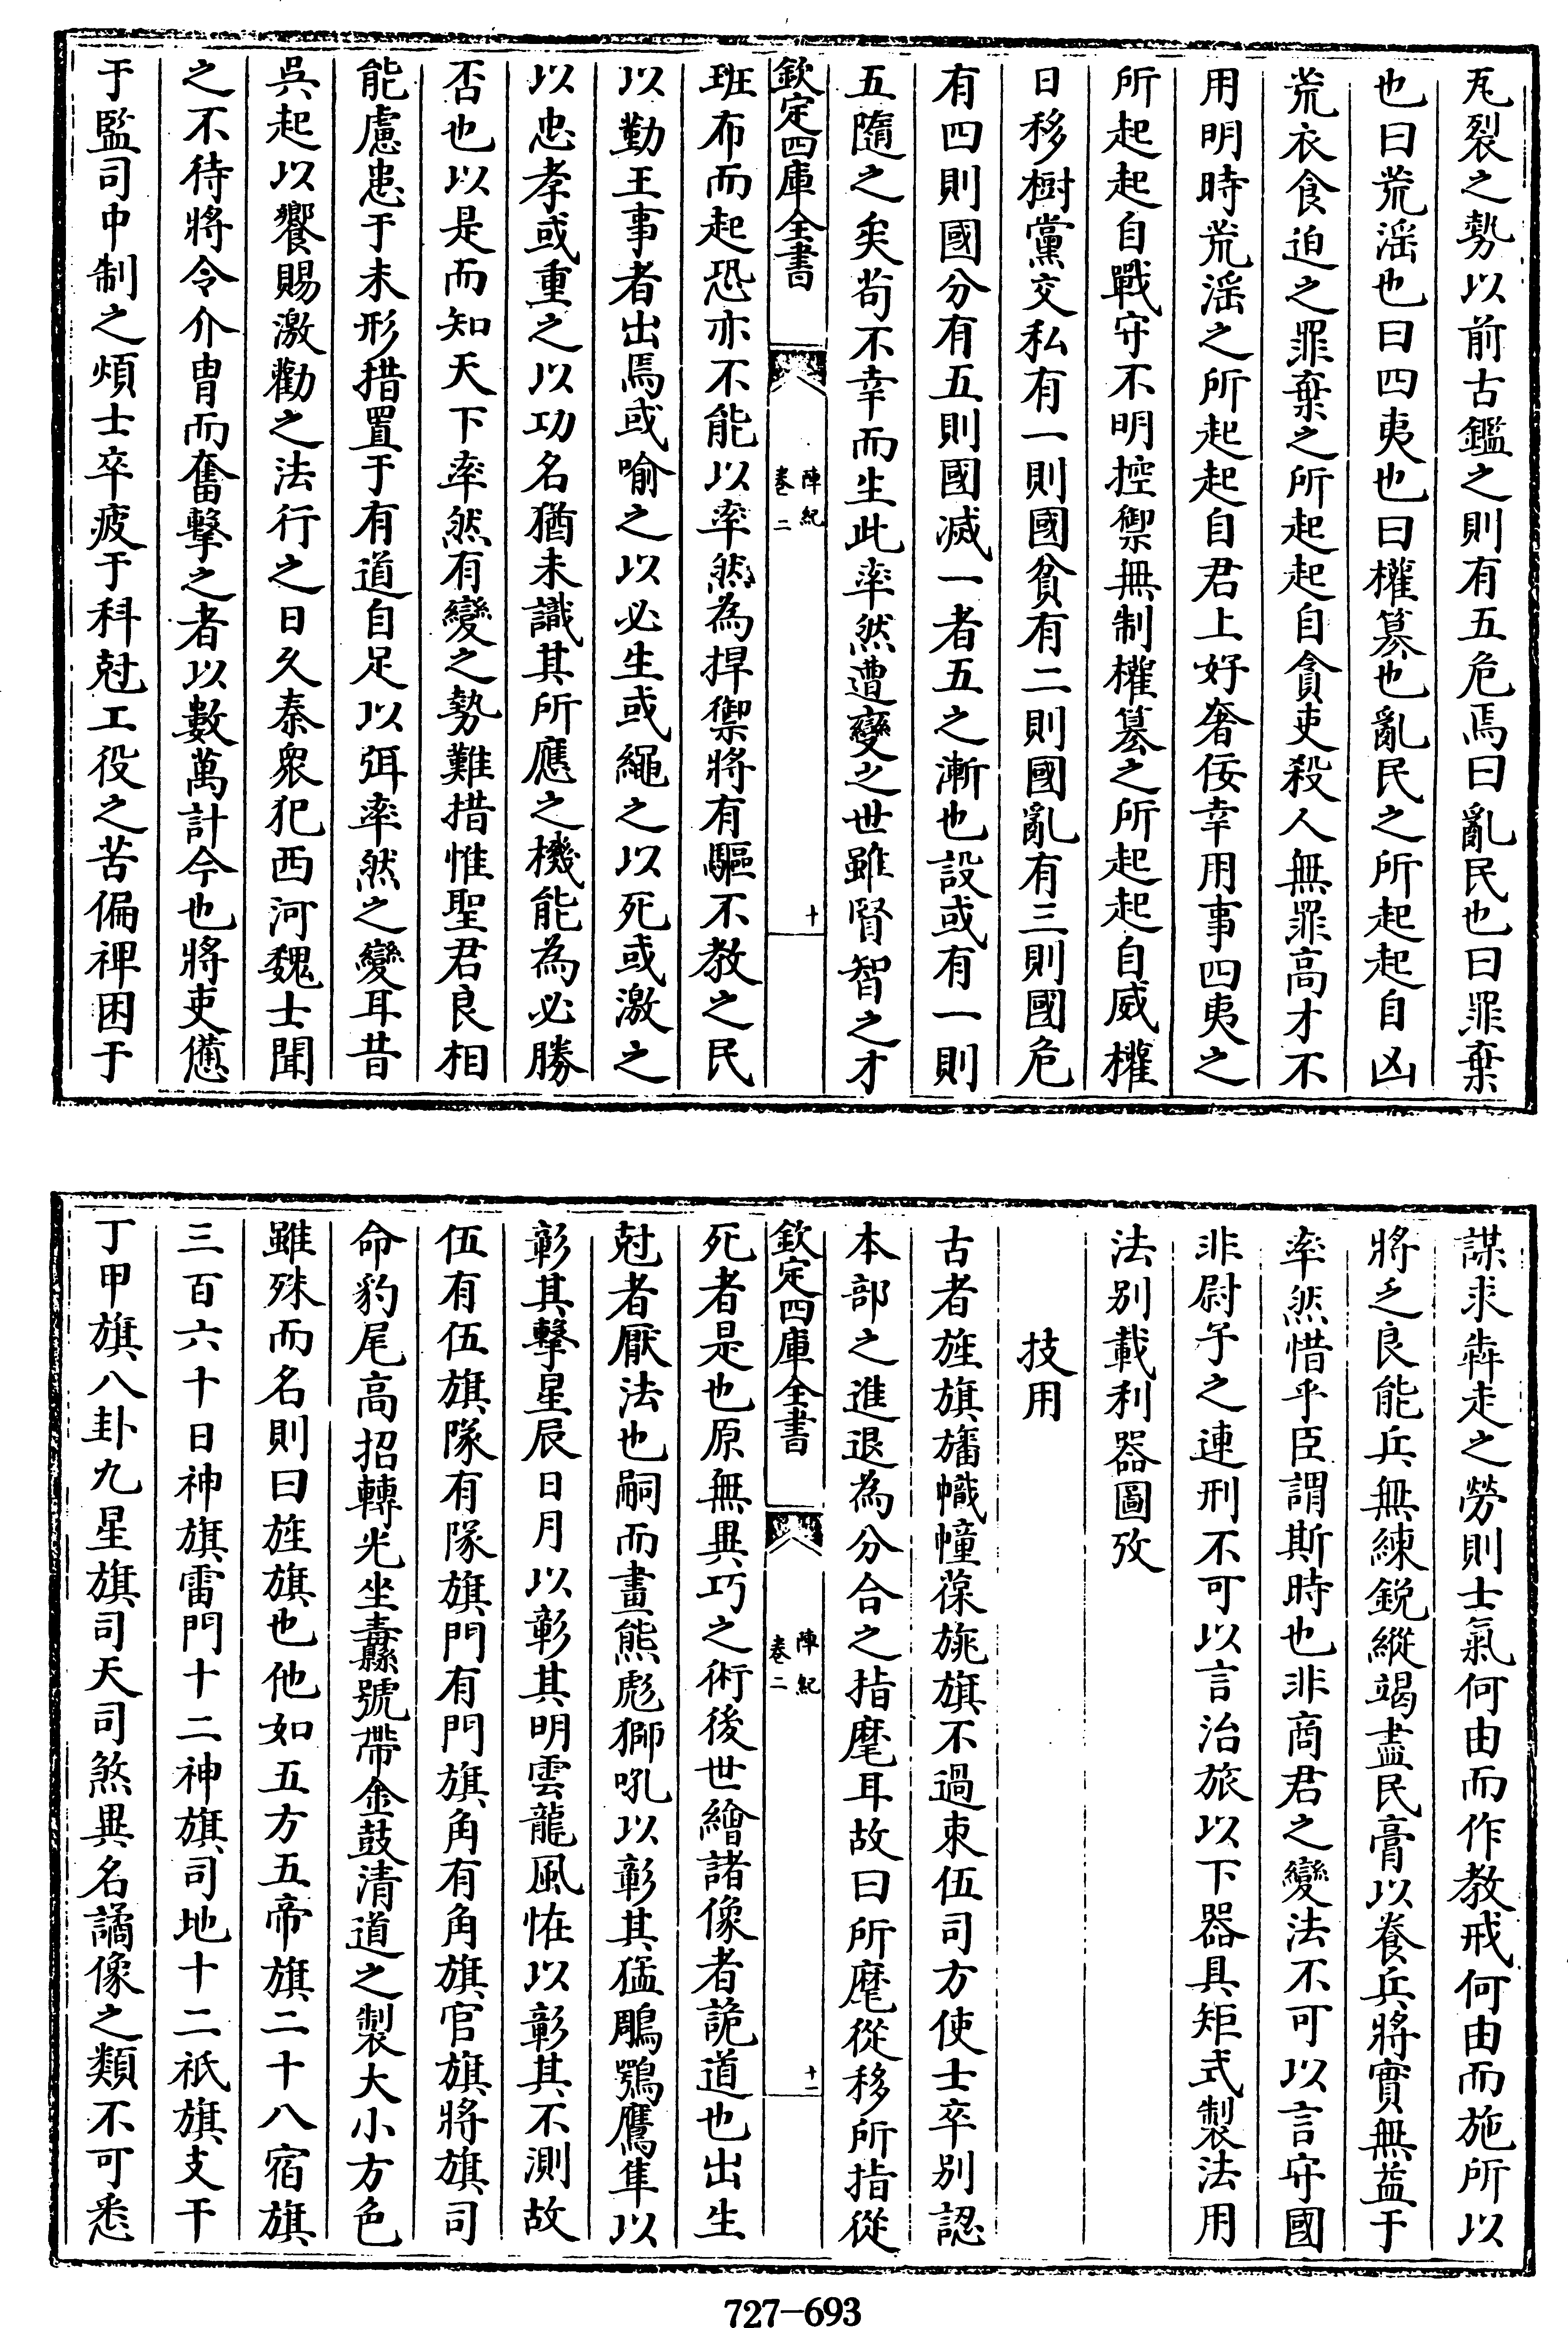 瓦裂之勢以前古鑑之則有五危焉曰亂民也曰罪棄
也曰荒滛也曰四夷也曰權篡也亂民之所起起自凶
荒衣食迫之罪棄之所起起自貪吏殺人無罪高才不
用明時荒滛之所起起自君上好奢佞幸用事四夷之
所起起自戰守不明控禦無制權篡之所起起自威權
日移樹黨交私有一則國貧有二則國亂有三則國危
有四則國分有五則國滅一者五之漸也設或有一則
五隨之矣茍不幸而生此率然遭變之世雖賢智之才
欽定四庫全書
陣紀
卷二
十
班布而起恐亦不能以率然為捍禦將有驅不教之民
以勤王事者出焉或喻之以必生或繩之以死或激之
以忠孝或重之以功名猶未識其所應之機能為必勝
否也以是而知天下率然有變之勢難措惟聖君良相
能慮患于未形措置于有道自足以弭率然之變耳昔
吳起以饗賜激勸之法行之日久秦衆犯西河魏士聞
之不待將令介胄而奮擊之者以數萬計今也將吏憊
于監司中制之煩士卒疲于科尅工役之苦偏裨困于
謀求犇走之勞則士氣何由而作教戒何由而施所以
將乏良能兵無練銳縱竭盡民膏以養兵將實無益于
率然惜乎臣謂斯時也非商君之變法不可以言守國
非尉子之連刑不可以言治旅以下器具矩式製法用
法別載利器圖攷
技用
古者旌旗旛幟幢葆旐旗不過束伍司方使士卒別認
本部之進退為分合之指麾耳故曰所麾從移所指從
欽定四庫全書
陣紀
卷二
十一
死者是也原無異巧之術後世繪諸像者詭道也出生
尅者厭法也嗣而畫熊彪獅吼以彰其猛鵰鶚鷹隼以
彰其擊星辰日月以彰其明雲龍風恠以彰其不測故
伍有伍旗隊有隊旗門有門旗角有角旗官旗將旗司
命豹尾高招轉光坐纛號帶金鼓清道之製大小方色
雖殊而名則曰旌旗也他如五方五帝旗二十八宿旗
三百六十日神旗雷門十二神旗司地十二祇旗支干
丁甲旗八卦九星旗司天司煞異名譎像之類不可悉
727-693